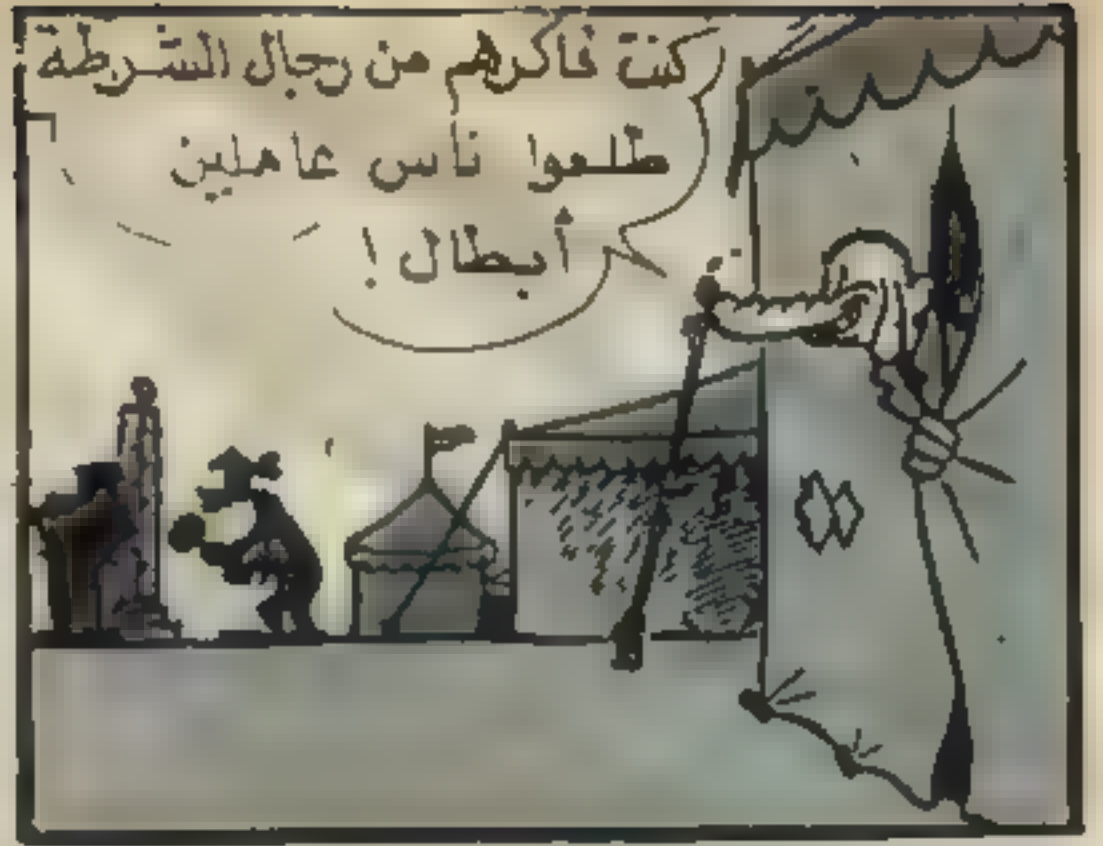 كنت فاكرهم من رجال الشرطة
طلعوا ناس عاملين
أبطال !